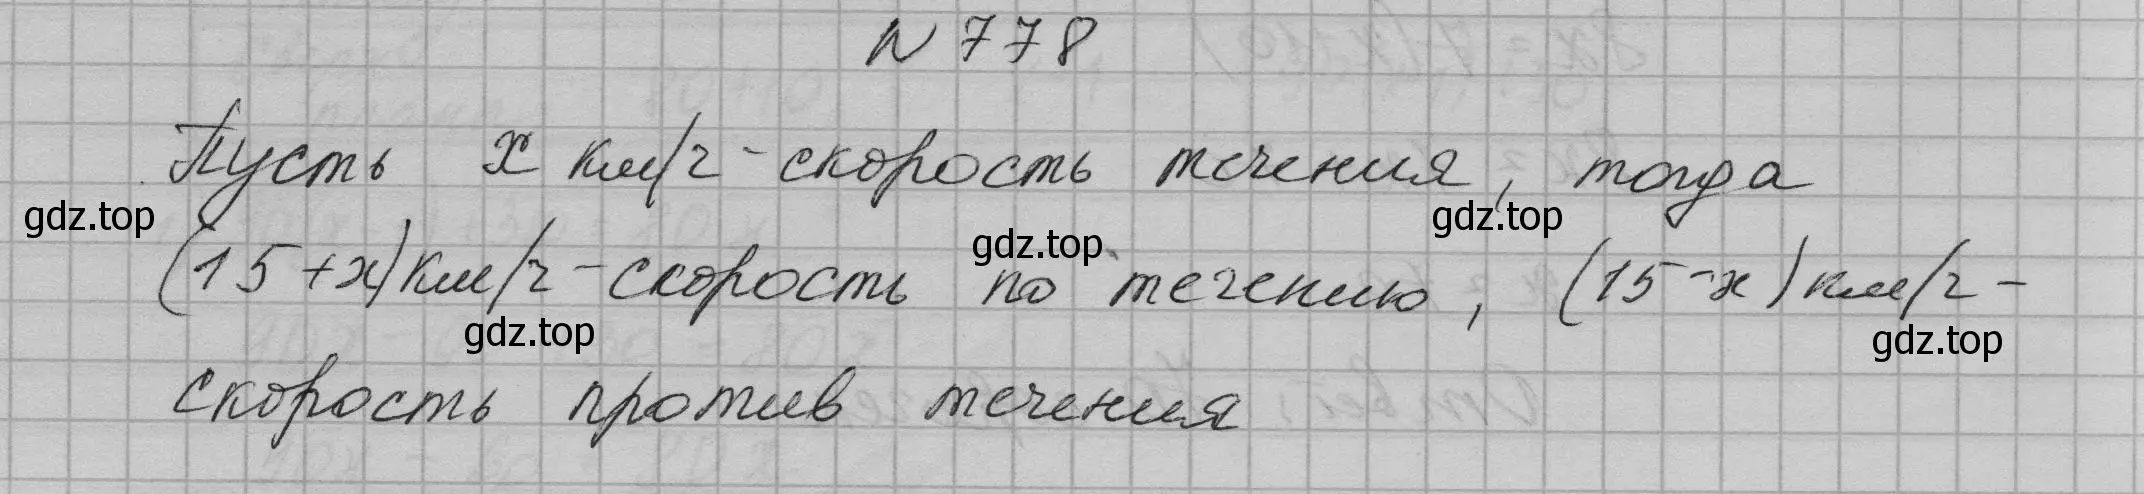 N 778
Пусть x км/ч - скорость течения, тогда
gdz.top gdz.top gdz.top
(15+x) км/ч - скорость по течению, (15-x) км/ч -
gdz.top gdz.top
скорость против течения